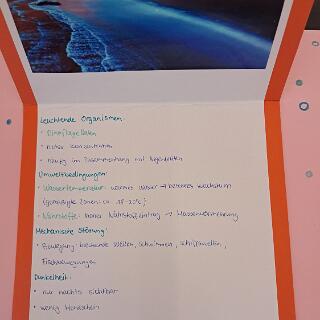 Leuchtende Organismen:
• Dinoflagellaten
• hoher Konzentration
• häufig im Zusammenhang mit Algenblüten
Umweltbedingungen:
• Wassertemperatur: warmes Wasser → besseres Wachstum
(gemäßigte Zonen: ca. 18-20°C)
• Nährstoffe: hoher Nährstoffeintrag → Massenvermehrung
Mechanische Störung:
• Bewegung: brechende Wellen, schwimmen, Schiffswellen,
Fischbewegungen
Dunkelheit:
• nur nachts sichtbar
• wenig Mondschein